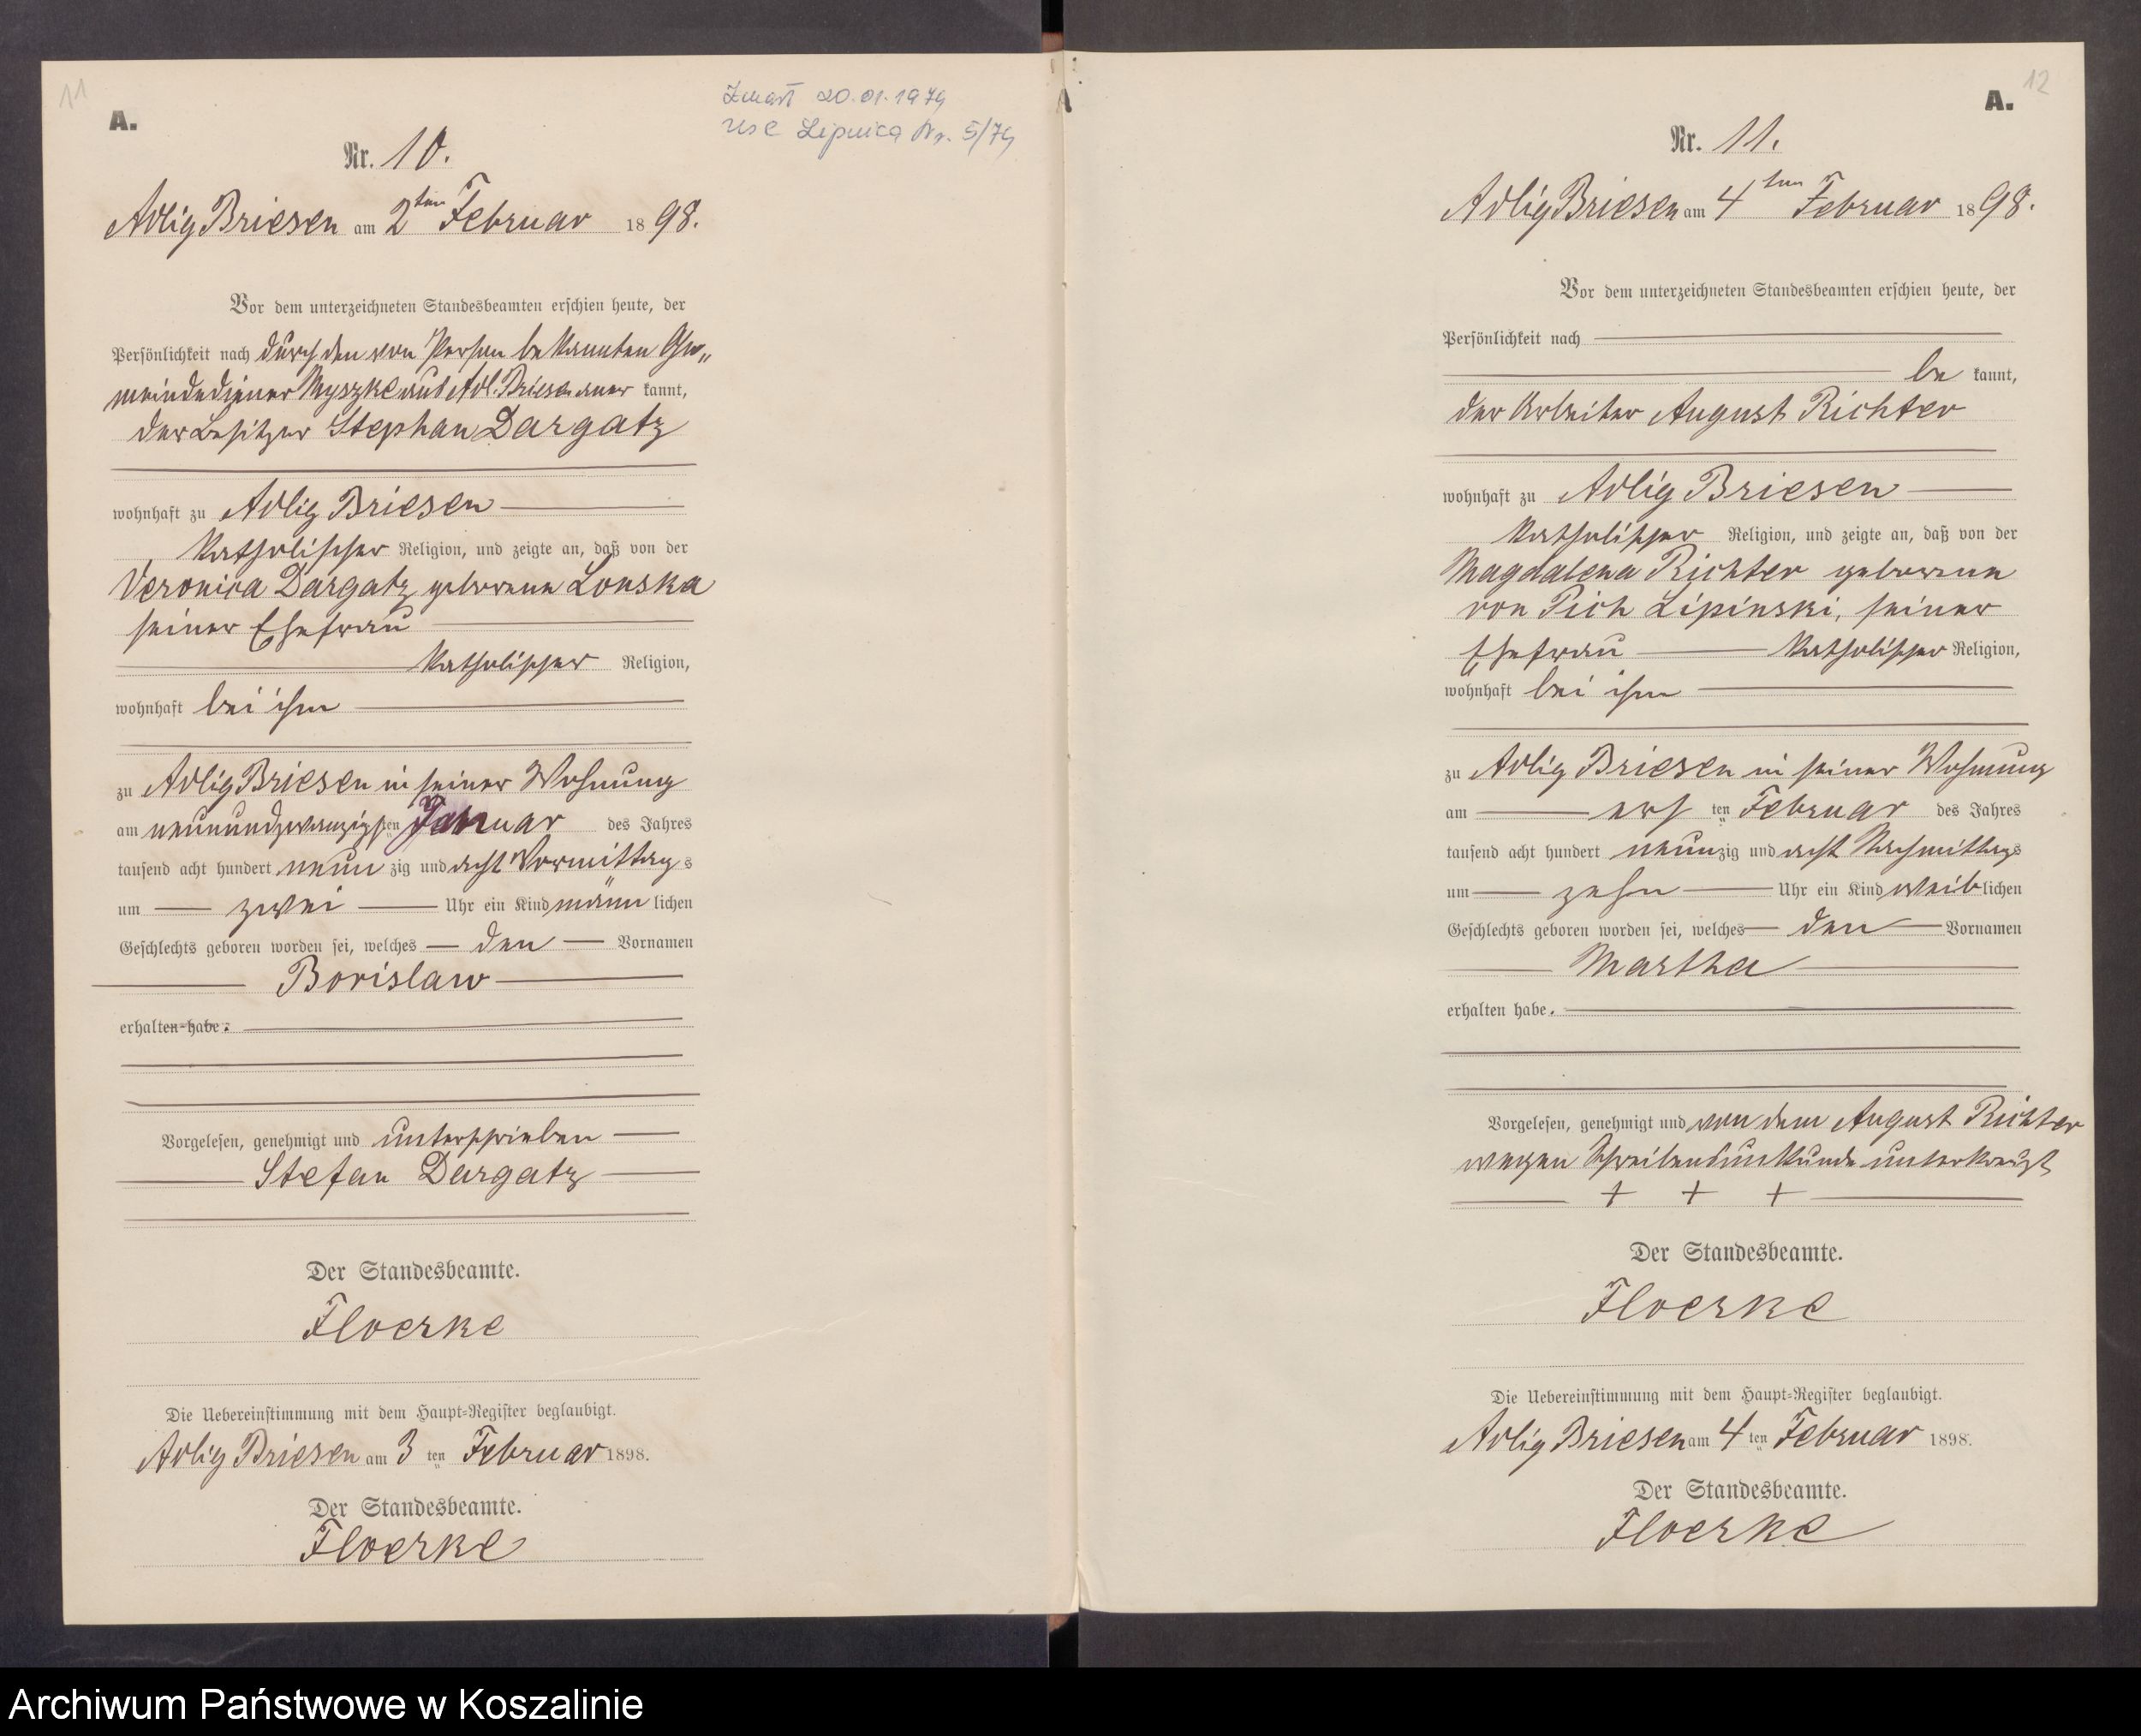 11
A.
Zmarł 20.01.1979
USC Lipnica Nr. 5/79
Nr. 10.
Adlig Briesen am 2ten Februar 1898.
Vor dem unterzeichneten Standesbeamten erschien heute, der
Persönlichkeit nach durch den von Person bekannten Ge„
meindediener Myszke aus Adl. Briesen aner kannt,
der Besitzer Stephan Dargatz
wohnhaft zu Adlig Briesen
katholischer Religion, und zeigte an, daß von der
Veronica Dargatz geborene Lonska
seiner Ehefrau
katholischer Religion,
wohnhaft bei ihm
zu Adlig Briesen in seiner Wohnung
am neunundzwanzigsten Januar des Jahres
tausend acht hundert neun zig und acht Vormittags
um zwei Uhr ein Kind männ lichen
Geschlechts geboren worden sei, welches den Vornamen
Borislaw
erhalten habe.
Vorgelesen, genehmigt und unterschrieben
Stefan Dargatz
Der Standesbeamte.
Floerke
Die Uebereinstimmung mit dem Haupt-Register beglaubigt.
Adlig Briesen am 3 ten Februar 1898.
Der Standesbeamte.
Floerke
12
A.
Nr. 11.
Adlig Briesen am 4ten Februar 1898.
Vor dem unterzeichneten Standesbeamten erschien heute, der
Persönlichkeit nach
be kannt,
der Arbeiter August Richter
wohnhaft zu Adlig Briesen
katholischer Religion, und zeigte an, daß von der
Magdalena Richter geborene
von Pich Lipinski, seiner
Ehefrau katholischer Religion,
wohnhaft bei ihm
zu Adlig Briesen in seiner Wohnung
am ers ten Februar des Jahres
tausend acht hundert neunzig und acht Nachmittags
um zehn Uhr ein Kind weiblichen
Geschlechts geboren worden sei, welches den Vornamen
Martha
erhalten habe.
Vorgelesen, genehmigt und von dem August Richter
wegen Schreibensunkunde unterkreuzt
+ + +
Der Standesbeamte.
Floerke
Die Uebereinstimmung mit dem Haupt-Register beglaubigt.
Adlig Briesen am 4 ten Februar 1898.
Der Standesbeamte.
Floerke
Archiwum Państwowe w Koszalinie